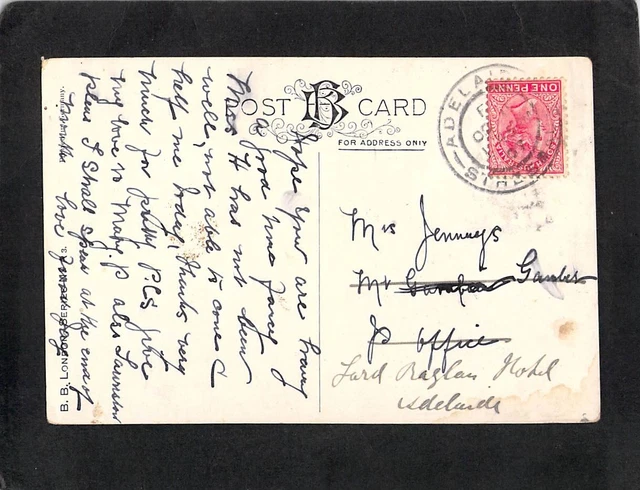 POST CARD
FOR ADDRESS ONLY
ADELAIDE
ONE PENNY
hope you are having
a good time fancy
Mrs H has not been
well, not able to come &
help me today, thanks very
much for pretty P.Cs give
my love to Mary. P also
plans I shall be at the end of
love from
B. B. LONDON. SERIES NO.
Mrs Jennings
Mt Gambier
P Office
Lord Raglan Hotel
Adelaide